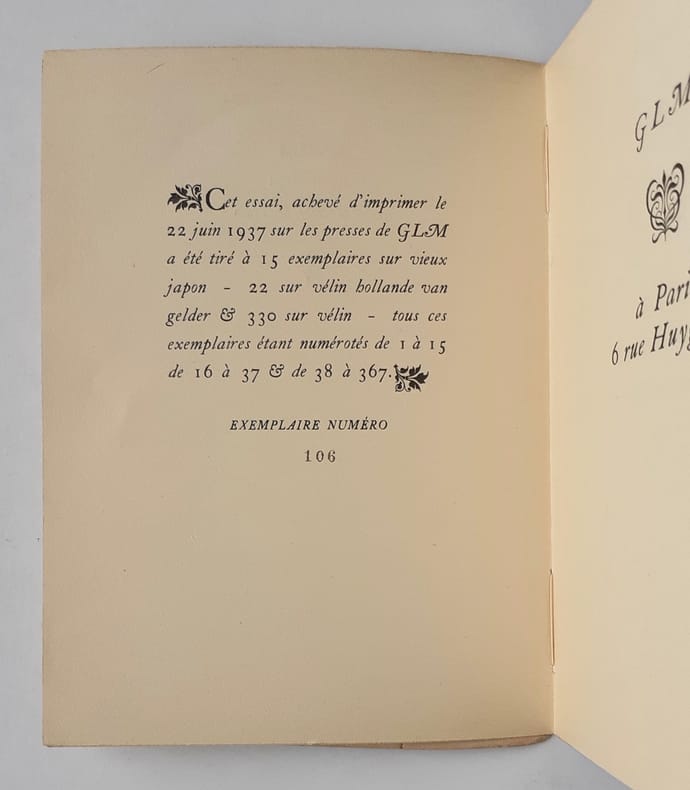 Cet essai, achevé d'imprimer le
22 juin 1937 sur les presses de GLM
a été tiré à 15 exemplaires sur vieux
japon - 22 sur vélin hollande van
gelder & 330 sur vélin - tous ces
exemplaires étant numérotés de 1 à 15
de 16 à 37 & de 38 à 367.
EXEMPLAIRE NUMÉRO
106
GLM
à Pari
6 rue Huyg